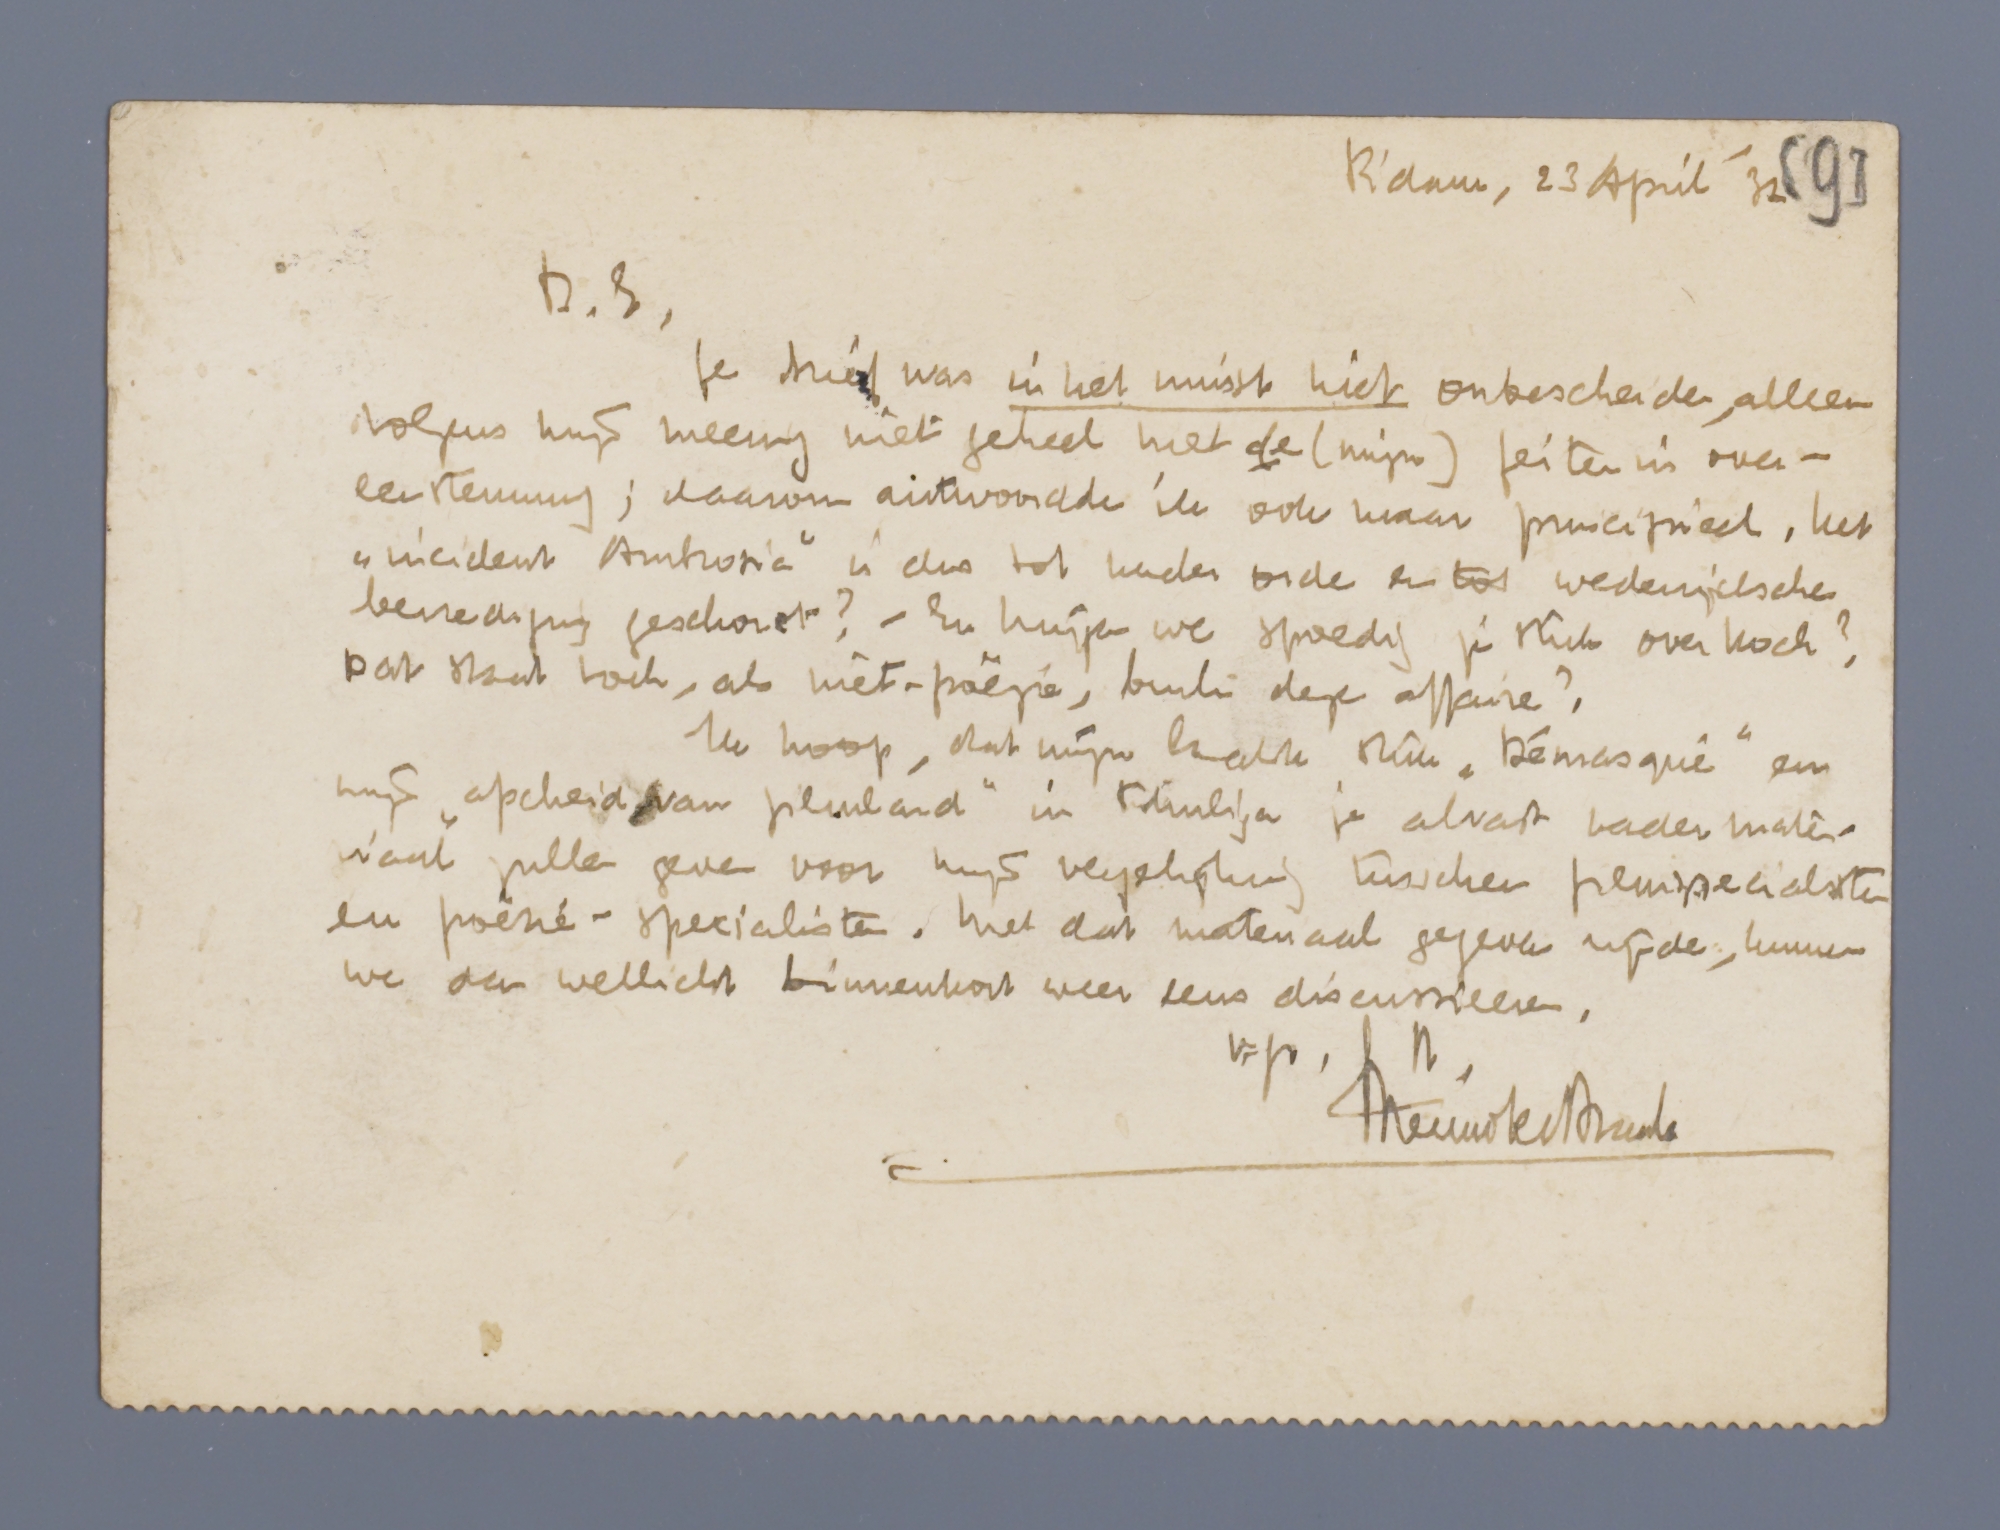 R'dam, 23 April '32
[59]
B. E,
Je brief was in het minst niet onbescheiden, alleen
volgens mijn meening niet geheel met de (mijn) feiten in over-
eenstemming; daarom antwoordde ik ook maar principieel. Het
„incident Ambrosia" is dus tot nader orde en tot wederzijdsche
bevrediging geschorst? – En krijgen we spoedig je stuk over Koch?
Dat staat toch, als niet-poëzie, buiten deze affaire?
Ik hoop, dat mijn laatste stuk „Démasqué" en
mijn „afscheid van filmland" in Filmliga je alvast nader mate-
riaal zullen geven voor mijn vergelijking tusschen filmspecialisten
en poëzie-specialisten. Met dat materiaal gegevens rijker, kunnen
we dan wellicht binnenkort weer eens discussieeren.
m. vr. gr., t. t.,
Menno ter Braak